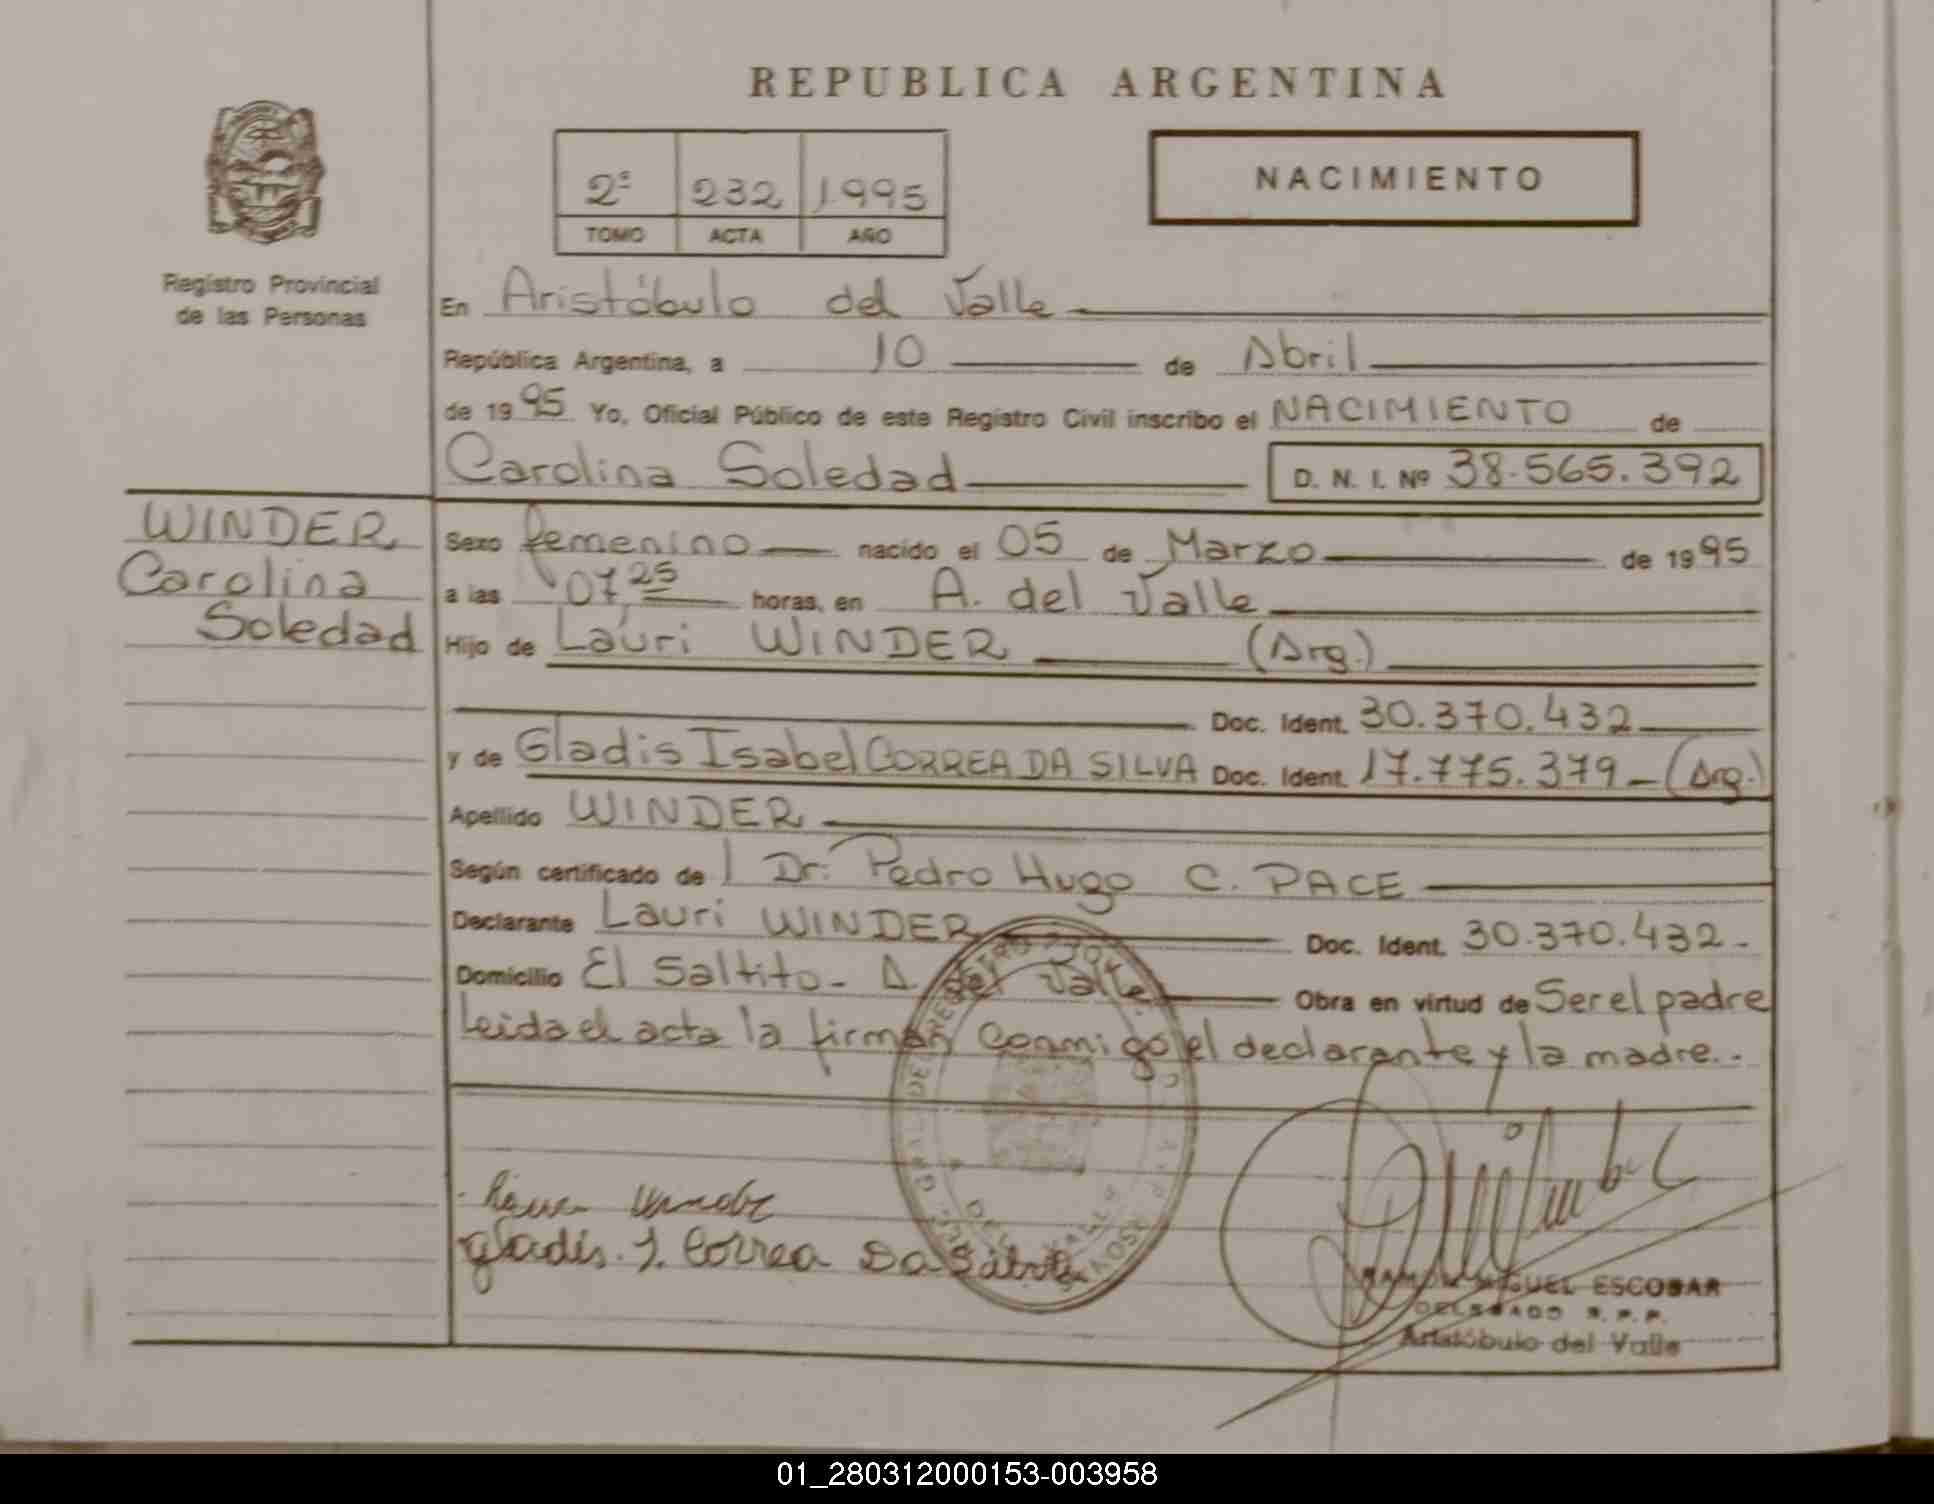 REPUBLICA ARGENTINA
2º 232 1995
TOMO ACTA AÑO
NACIMIENTO
Registro Provincial
de las Personas
En Aristóbulo del Valle
República Argentina, a 10 de Abril
de 1995 Yo, Oficial Público de este Registro Civil inscribo el NACIMIENTO de
Carolina Soledad D. N. I. Nº 38.565.392
WINDER
Carolina
Soledad
Sexo femenino nacido el 05 de Marzo de 1995
a las 07,25 horas, en A. del Valle
Hijo de Lauri WINDER (Arg.)
Doc. Ident. 30.370.432
y de Gladis Isabel CORREA DA SILVA Doc. Ident. 17.775.379 - (Arg.)
Apellido WINDER
Según certificado de l Dr. Pedro Hugo C. PACE
Declarante Lauri WINDER Doc. Ident. 30.370.432-
Domicilio El Saltito - A. del Valle Obra en virtud de Ser el padre
Leida el acta la firman conmigo el declarante y la madre..
Gladis. I. Correa Da Silva
MIGUEL ESCOBAR
DELEGADO R. P. P.
Aristóbulo del Valle
01_280312000153-003958